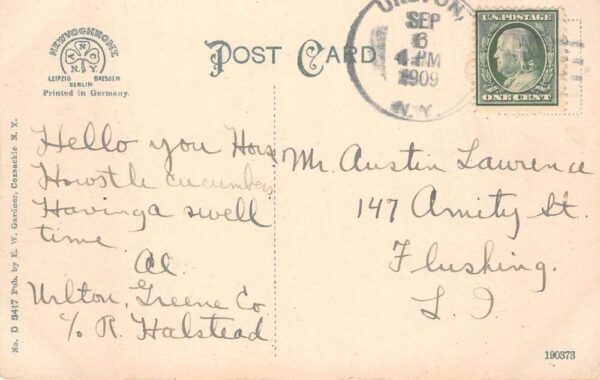 NEWVOCHROME
A N C
N.Y.
LEIPZIG DRESDEN
BERLIN
Printed in Germany.
POST CARD
URLTON,
SEP
6
4 PM
1909
N.Y.
U.S. POSTAGE
ONE CENT
Hello you
Howstle cucumbers
Having a swell
time
Al
Urlton, Greene Co
c/o R. Halstead
Mr. Austin Lawrence
147 Amity St.
Flushing.
L. I
No. D 8417 Pub. by E. W. Gardiner, Coxsackie N. Y.
190373